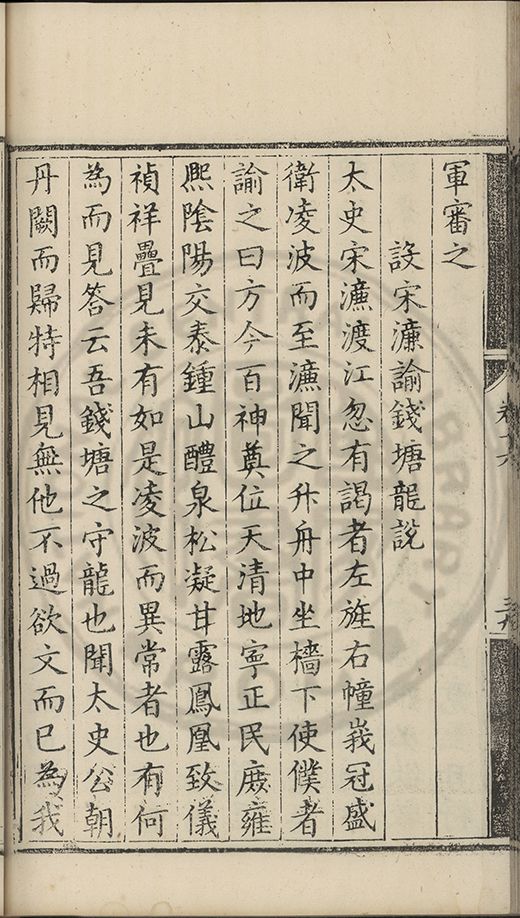 軍審之
設宋濂諭錢塘龍說
太史宋濂渡江忽有謁者左旌右幢峩冠盛
衛凌波而至濂聞之升舟中坐檣下使僕者
諭之曰方今百神奠位天清地寧正民庶雍
熙陰陽交泰鍾山醴泉松凝甘露鳳凰致儀
禎祥疊見未有如是凌波而異常者也有何
為而見答云吾錢塘之守龍也聞太史公朝
丹闕而歸特相見無他不過欲文而已為我